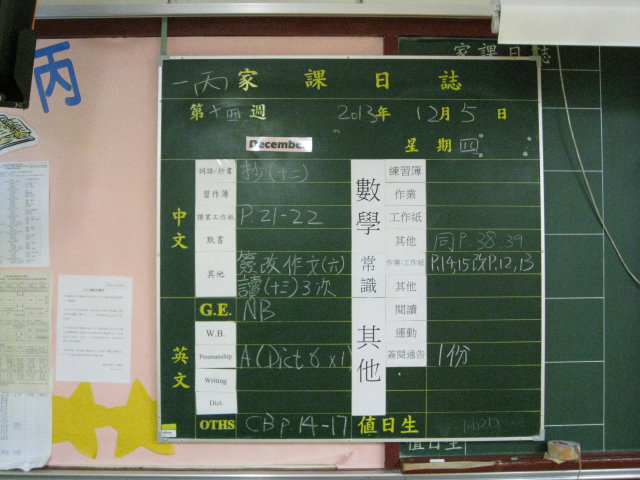 丙
家課日誌
一丙 家課日誌
第十四週 2013年 12月5日
December
星期四
中文
詞語/抄書 抄(十二)
習作簿
課業工作紙 P.21-22
默書
其他 簽改作文(六)
讀(十三)3次
G.E. NB
英文
W.B.
Penmanship A (Dict 6 x1)
Writing
Dict.
OTHS CB P.14-17
數學
練習簿
作業
工作紙
其他 同P.38.39
常識
作業/工作紙 P.14-15改P.12,13
其他
其他
閱讀
運動
簽閱通告 1份
值日生
值日生